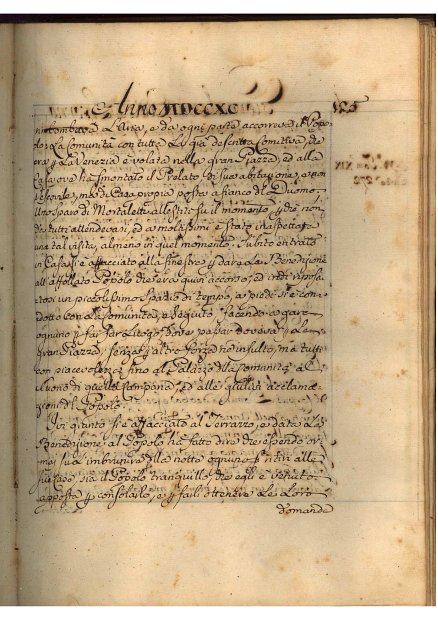 Anno MDCCXC 125
rimbombava l'Aria, e da ogni parte accorreva il Popo-
lo; La Comunità con tutta la già descritta Comitiva, che
era p Venezia è volata nella gran Piazza, ed alla
Casa ove ha smontato il Prelato di sua abitazione, e non
Vescovile, mà di Casa propria posta a fianco del Duomo.
Uno sparo di Mortaletti allestiti fu il momento, p che non
da tutti attendevasi, ed a moltissimi è stata inaspettata
una tal visita, almeno in quel momento. Subito entrato
in Casa si è affacciato alla finestra p dare la Benedizione
all'affollato Popolo che era quivi accorso, ed indi riposa-
tosi un piccolissimo spazio di tempo, a piedi si è con-
dotto con la Comunità, e seguito, facendo a gara
ognuno p far far Largo dove passar doveva p la
gran Piazza, senza p altro forza nè insulto, mà tutti
con piacevolezza fino al Palazzo della Comunità al
suono di quelle Campane, ed alle giulive acclama-
zioni del Popolo.
Ivi giunto si è affacciato al Terrazzo, e data la
Benedizione al Popolo ha fatto dire che essendo or-
mai sull'imbrunire della notte ognuno si ritiri alle
sue case, stia il Popolo tranquillo, che egli è venuto
apposta p consolarlo, e p farli ottenere le Loro
domande